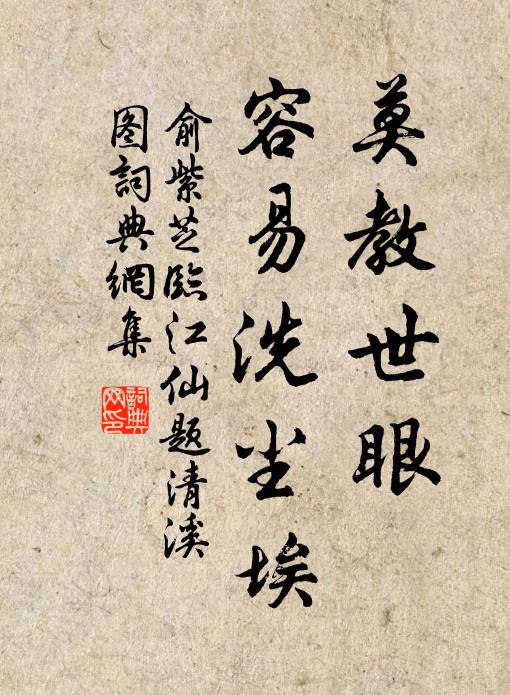 莫教世眼
容易洗尘埃
俞紫芝臨江仙题清溪
图詞典網集
詞典网印